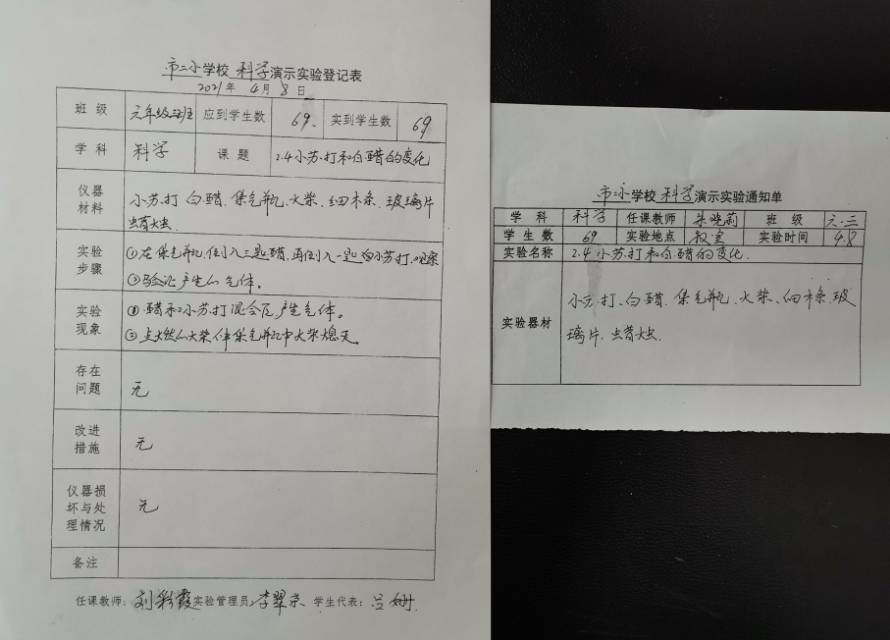 市二小学校 科学演示实验登记表
2021年 4月 8日
班级 六年级三班 应到学生数 69. 实到学生数 69
学科 科学 课题 2.4小苏打和白醋的变化
仪器材料 小苏打 白醋、集气瓶、火柴、细木条、玻璃片
蜡烛
实验步骤 ①在集气瓶倒入三匙醋,再倒入一匙白小苏打,观察
②验证产生的气体。
实验现象 ①醋和小苏打混合后产生气体。
②点燃的火柴伸集气瓶中火柴熄灭。
存在问题 无
改进措施 无
仪器损坏与处理情况 无
备注
任课教师:刘彩霞 实验管理员:李翠京 学生代表:吕姗
市二小学校 科学演示实验通知单
学科 科学 任课教师 朱晓莉 班级 六.三
学生数 69 实验地点 教室 实验时间 4.8
实验名称 2.4小苏打和白醋的变化.
实验器材 小苏打、白醋、集气瓶、火柴、细木条、玻
璃片、蜡烛.